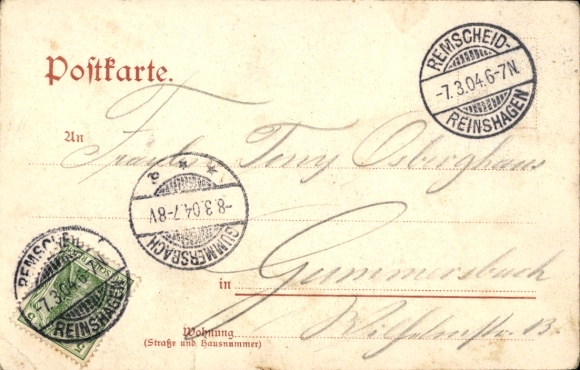 Postkarte.
REMSCHEID-
-7.3.04.6-7N.
REINSHAGEN
An Fräulein Osberghaus
* * a
-8.3.04.7-8V
GUMMERSBACH
in Gummersbach
REMSCHEID-
7.3.04.6
REINSHAGEN
5
Wohnung Wilhelmstr. 13.
(Straße und Hausnummer)